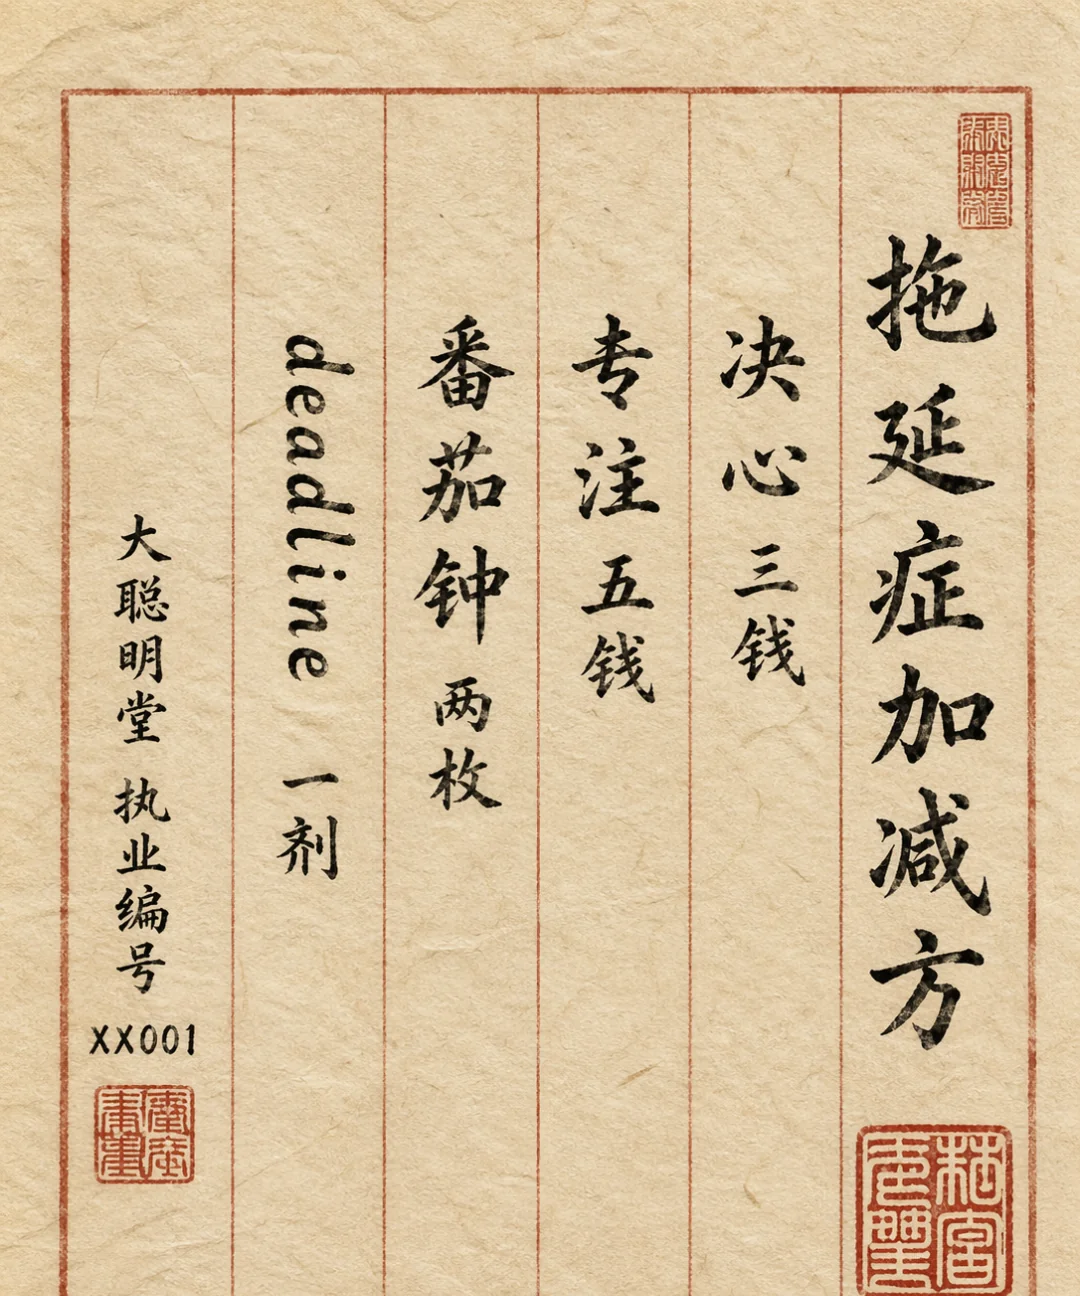 拖延症加减方
决心 三钱
专注 五钱
番茄钟 两枚
deadline 一剂
大聪明堂 执业编号
XX001